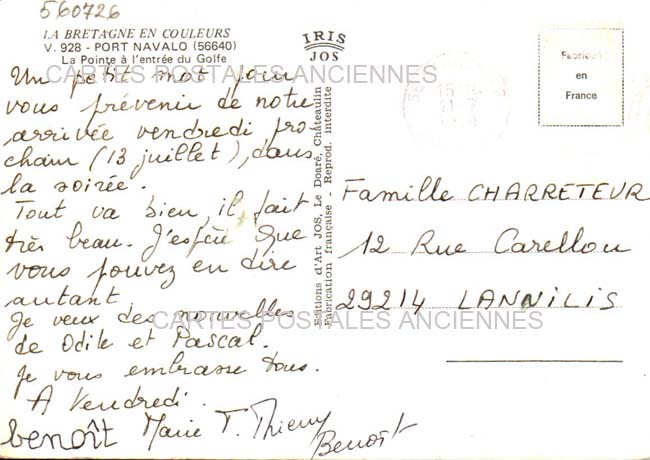 560726
LA BRETAGNE EN COULEURS
V. 928 - PORT NAVALO (56640)
La Pointe à l'entrée du Golfe
Un petit mot pour
vous prévenir de notre
arrivée vendredi pro-
chain (13 juillet), dans
la soirée.
Tout va bien, il fait
très beau. J'espère que
vous pouvez en dire
autant.
Je veux des nouvelles
de Odile et Pascal.
Je vous embrasse tous.
A Vendredi.
benoît Marie T. Thierry
Benoît
IRIS
JOS
Editions d'Art JOS, Le Doaré, Châteaulin
Fabrication française - Reprod. interdite
Fabriqué
en
France
15
Famille CHARRETEUR
12 Rue Carellou
29214 LANNILIS
CARTES POSTALES ANCIENNES
CARTES POSTALES ANCIENNES